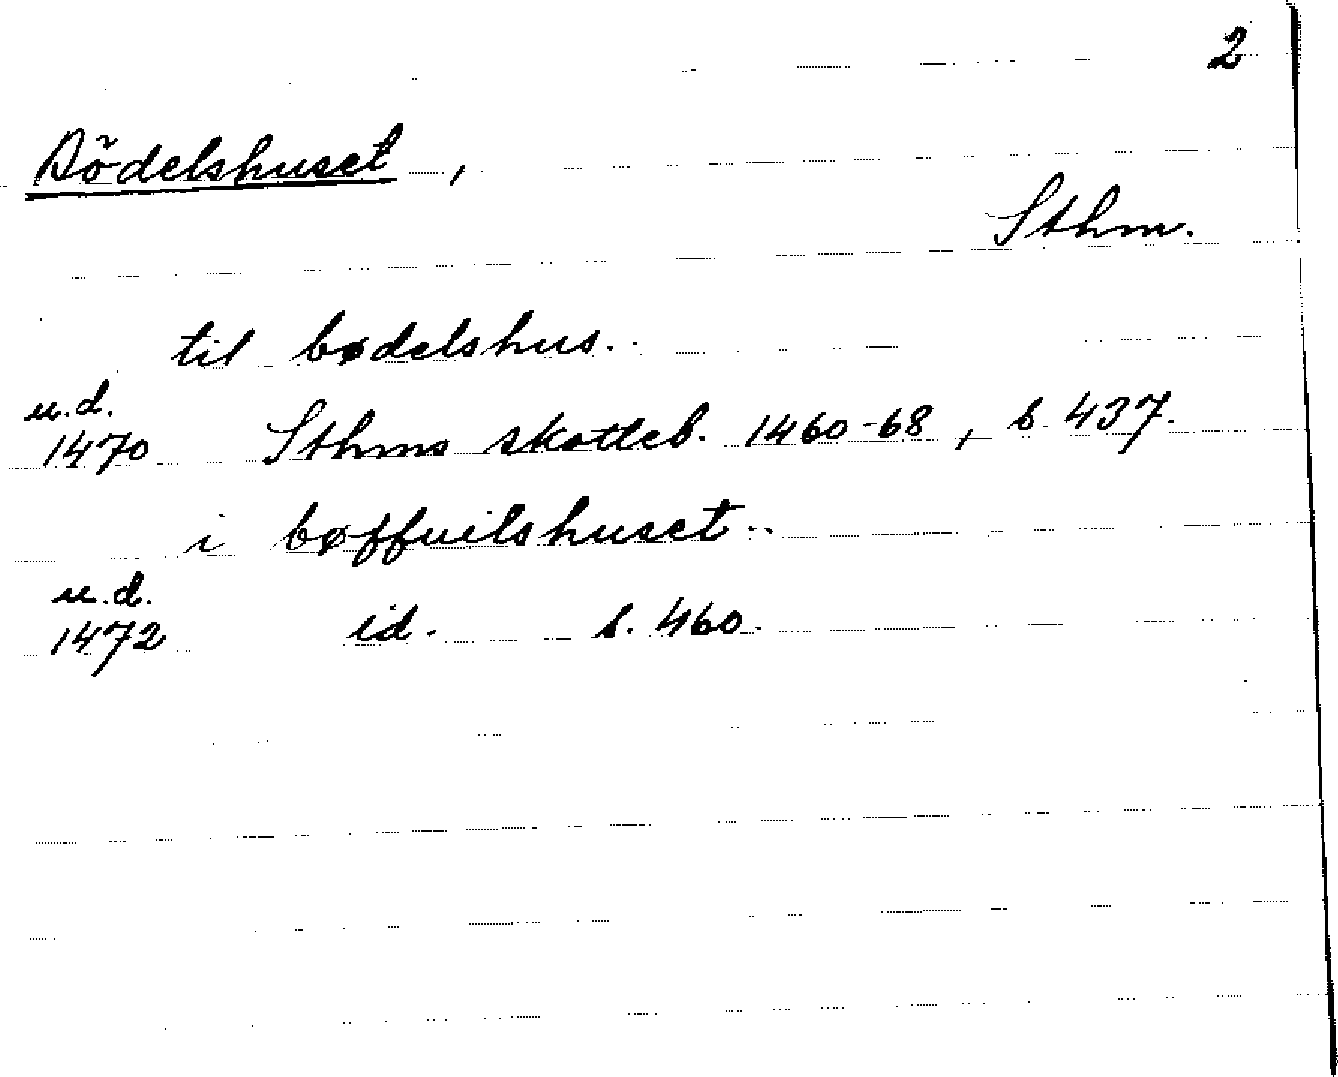 2
Bödelshuset,
Sthm.
til bødelshus..
u.d.
1470 Sthms skotteb. 1460-68, s 437.
i bøffuilshuset..
u.d.
1472 id. s. 460.